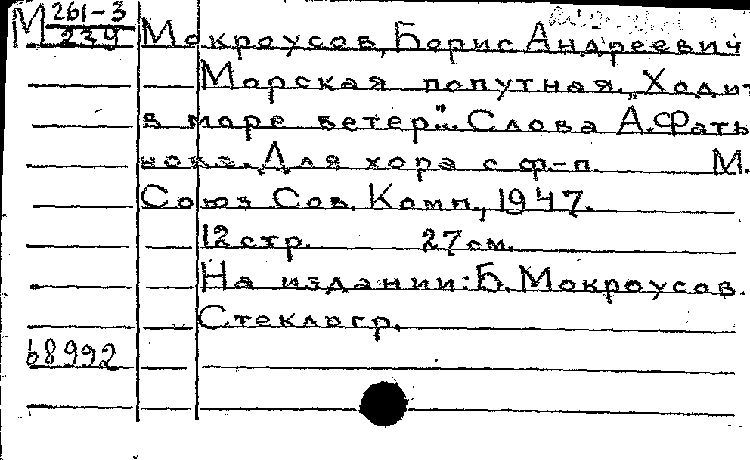 М 261-3
239
Мокроусов, Борис Андреевич
Морская попутная. „Ходит
в море ветер"... Слова А.Фать-
нова. Для хора с ф-п. М.
Союз Сов. Комп., 1947.
12 стр. 27 см.
На издании: Б. Мокроусов.
Стеклогр.
68992